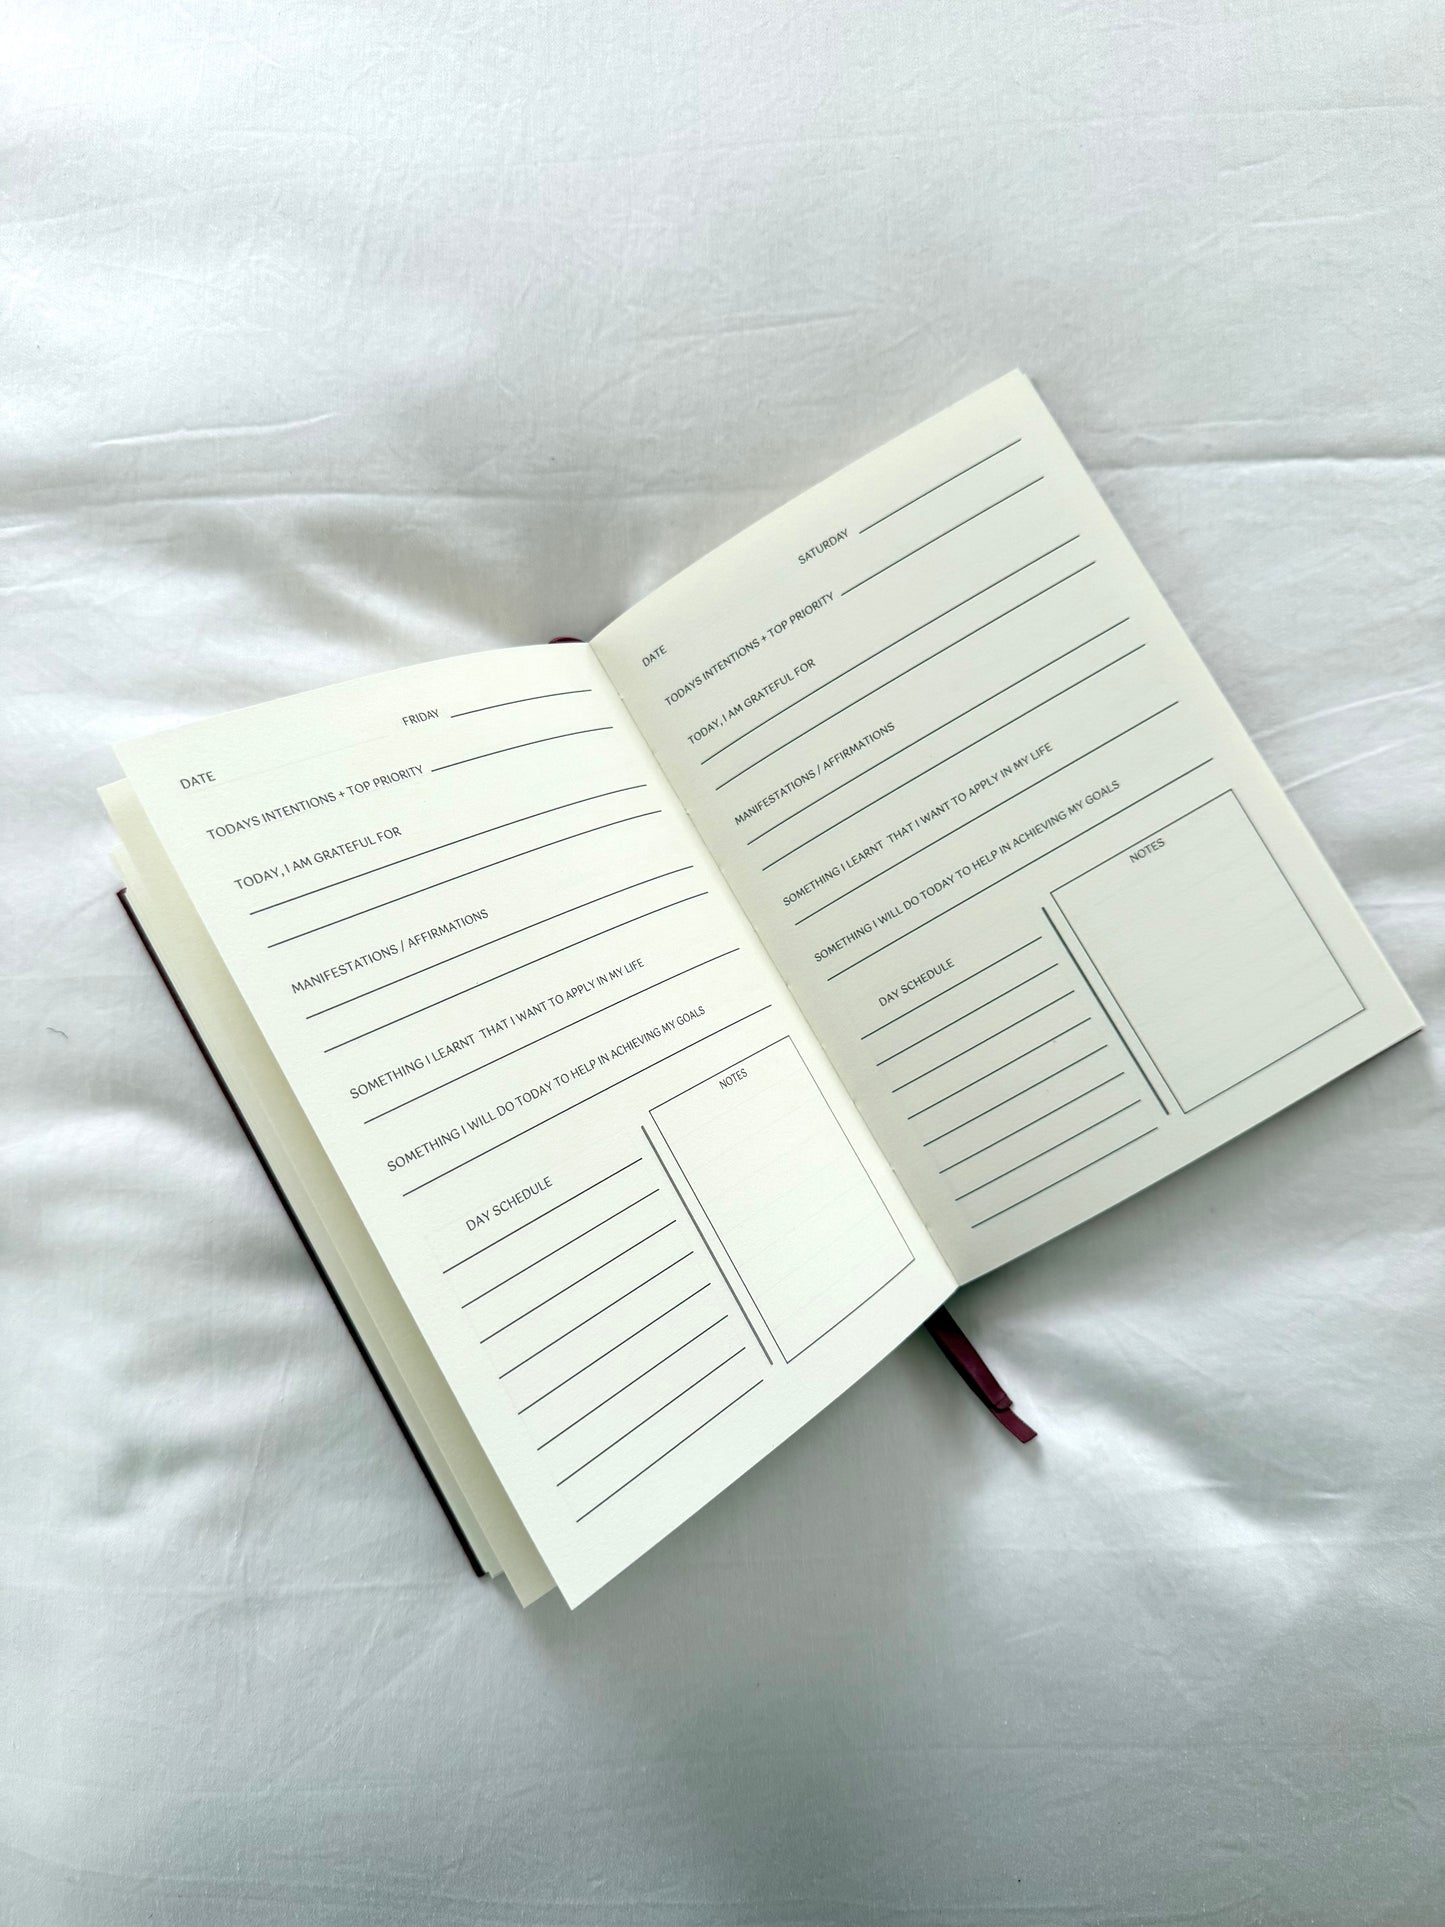 DATE
FRIDAY
TODAYS INTENTIONS + TOP PRIORITY
TODAY, I AM GRATEFUL FOR
MANIFESTATIONS / AFFIRMATIONS
SOMETHING I LEARNT THAT I WANT TO APPLY IN MY LIFE
SOMETHING I WILL DO TODAY TO HELP IN ACHIEVING MY GOALS
DAY SCHEDULE
NOTES
DATE
SATURDAY
TODAYS INTENTIONS + TOP PRIORITY
TODAY, I AM GRATEFUL FOR
MANIFESTATIONS / AFFIRMATIONS
SOMETHING I LEARNT THAT I WANT TO APPLY IN MY LIFE
SOMETHING I WILL DO TODAY TO HELP IN ACHIEVING MY GOALS
DAY SCHEDULE
NOTES